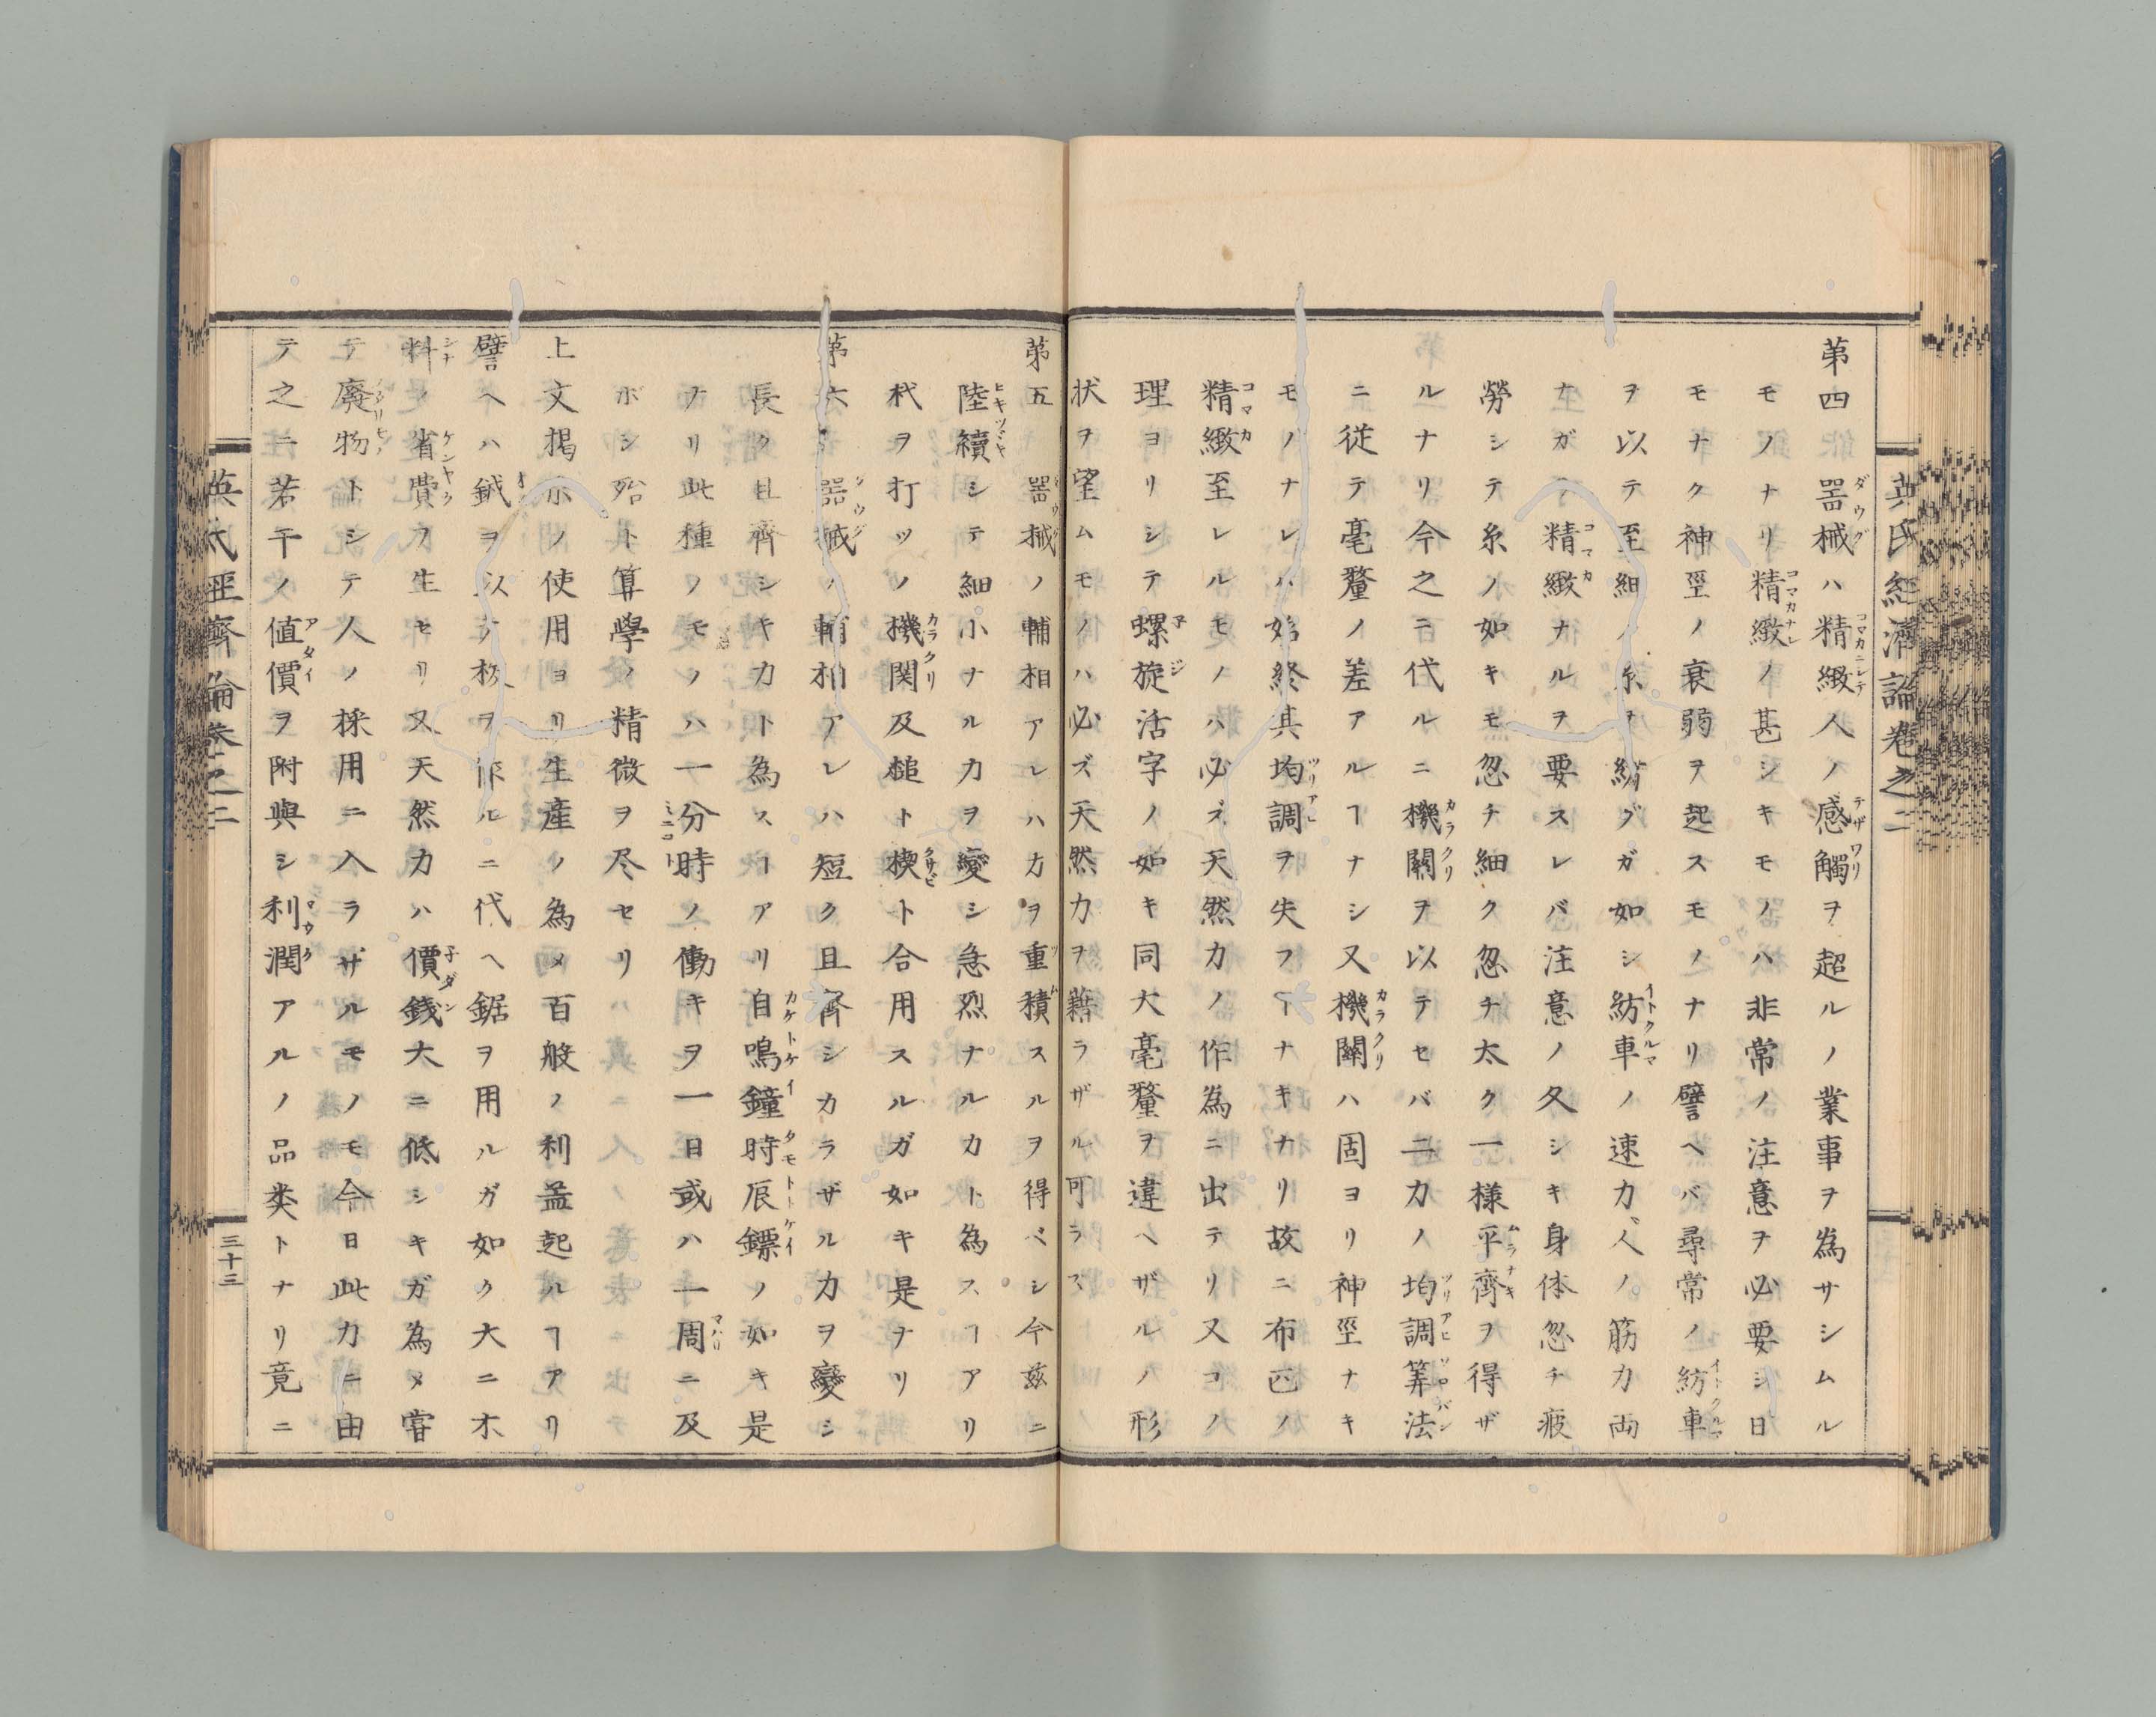 英氏経濟論卷之二
第四 器械ハ精緻人ノ感觸ヲ超ルノ業事ヲ為サシムル
モノナリ精緻ノ甚シキモノハ非常ノ注意ヲ必要シ日
モナク神巠ノ衰弱ヲ起スモノナリ譬ヘバ尋常ノ紡車
ヲ以テ至細ノ糸ヲ紡グガ如シ紡車ノ速力人ノ筋力両
ナガラ精緻ナルヲ要スレバ注意ノ久シキ身体忽チ疲
勞シテ糸ノ如キモ忽チ細ク忽チ太ク一樣平齊ヲ得ザ
ルナリ今之ニ代ルニ機關ヲ以テセバ二力ノ均調筭法
ニ従テ毫釐ノ差アルヿナシ又機關ハ固ヨリ神巠ナキ
モノナレハ始終其均調ヲ失フヿナキナリ故ニ布匹ノ
精緻至レルモノハ必ズ天然力ノ作為ニ出テリ又コノ
理ヨリシテ螺旋活字ノ如キ同大毫釐ヲ違ヘザルノ形
状ヲ望ムモノハ必ズ天然力ヲ藉ラザル可ラス
第五 器械ノ輔相アレハ力ヲ重積スルヲ得ベシ今茲ニ
陸續シテ細小ナル力ヲ變シ急烈ナル力ト為スヿアリ
杙ヲ打ツノ機関及槌ト楔ト合用スルガ如キ是ナリ
第六 器械ノ輔相アレハ短ク且齊シカラザル力ヲ變シ
長ク且齊シキ力ト為スヿアリ自鳴鐘時辰鏢ノ如キ是
ナリ此種ノモノハ一分時ノ働キヲ一日或ハ一周ニ及
ボシ殆ト算學ノ精微ヲ尽セリ
上文揭示ノ使用ヨリ生産ノ為メ百般ノ利益起ルヿアリ
譬ヘハ鉞ヲ以テ板ヲ作ルニ代ヘ鋸ヲ用ルガ如ク大ニ木
料ノ省費ヲ生セリ又天然力ハ價銭大ニ低シキガ為メ甞
テ廢物トシテ人ノ採用ニ入ラザルモノモ今日此力ニ由
テ之ニ若干ノ値價ヲ附與シ利潤アルノ品类トナリ竟ニ
英氏巠齊論卷之二
三十三